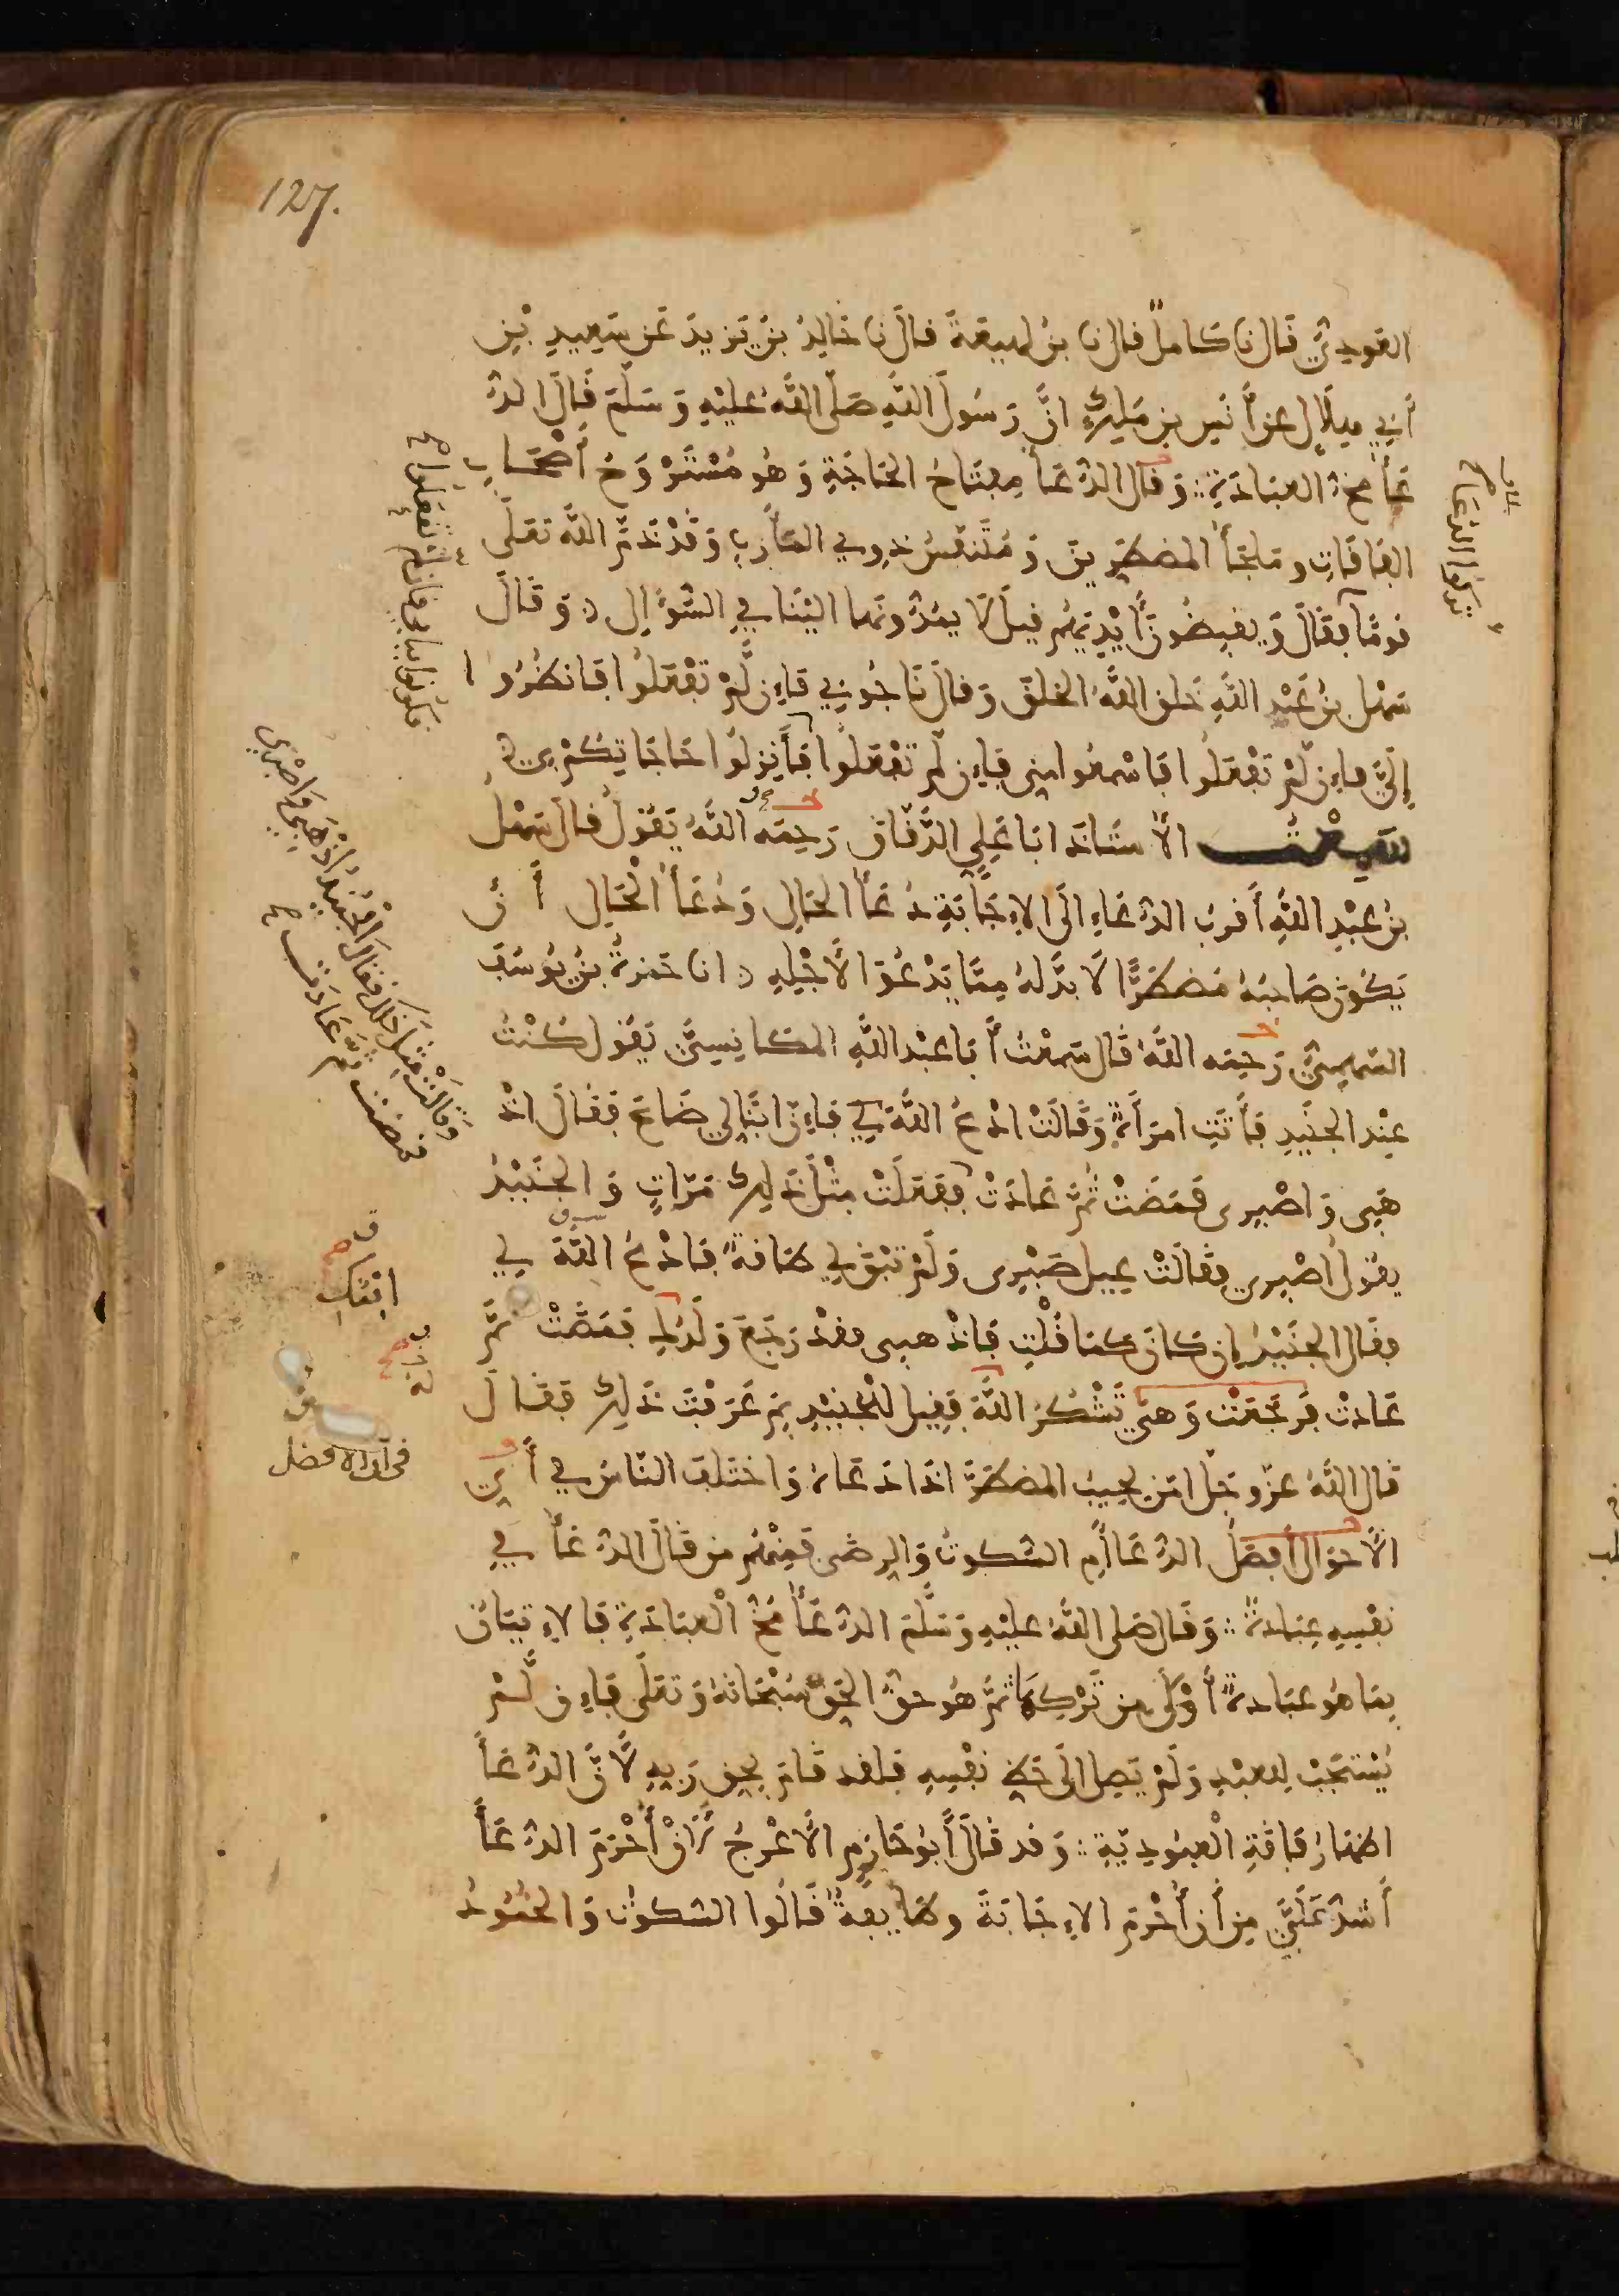 127.
العودي قال نا كامل قال نا بن لهيعة قال نا خالد بن يزيد عن سعيد بن
أبي هلال عن أنس بن ملك ان رسول الله صلى الله عليه وسلم قال الد
عأ مخ العبادة وقال الدعأ مفتاح الحاجة وهو مستروح أصحاب
الفاقات وملجأ المضطرين ومتنفس ذوي المأرب وقد ذم الله تعلى
قوما فقال ويقبضون أيديهم قيل لا يمدونها الينا في السؤال وقال
سهل بن عبد الله خلق الله الخلق وقال ناجوني فإن لم تفعلوا فانظروا
إلي فإن لم تفعلوا فاسمعوا مني فإن لم تفعلوا فأنزلوا حاجاتكم بي
سمعت الأستاذ ابا علي الدقاق رحمه الله يقول قال سهل
بن عبد الله أقرب الدعاء الى الإجابة دعأ الحال ودعأ الحال أن
يكون صاحبه مضطرا لا بد له مما يدعوا لأجله انا حمزة بن يوسف
السهمي رحمه الله قال سمعت أبا عبد الله المكانسي يقول كنت
عند الجنيد فأتت امرأة وقالت ادع الله لي فإن ابنا لي ضاع فقال اذ
هبي واصبرى فمضت ثم عادت ففعلت مثل ذلك مرات والجنيد
يقول اصبري فقالت عيل صبرى ولم تبق لي طاقة فادع الله لي
فقال الجنيد إن كان كما قلت فاذهبى فقد رجع ولدك فمضت ثم
عادت فرجعت وهي تشكر الله فقيل للجنيد بم عرفت ذلك فقال
قال الله عز وجل امن يجيب المضطر اذا دعاه واختلف الناس في أين
الأحوال أفضل الدعا أم السكوت والرضى فمنهم من قال الدعأ في
نفسه عبادة وقال صلى الله عليه وسلم الدعأ مخ العبادة فالإتيان
بما هو عبادة أولى من تركها ثم هو حق الحق سبحانه وتعلى فإن لم
يستجب للعبد ولم يصل الى حظ نفسه فلقد قام بحق ربه لأن الدعأ
اظهار فاقة العبودية وقد قال أبو حازم الأعرج لأن أحرم الدعأ
أشد علي من أن أحرم الإجابة وطايفة قالوا السكوت والخمود
تركوا الدعا
فكونوا ببابي فإن لم تفعلوا صح
وقالت مثل ذلك فقال الجنيد اذهبي واصبري
فمضت ثم عادت صح
ابنك
في أن الأفضل